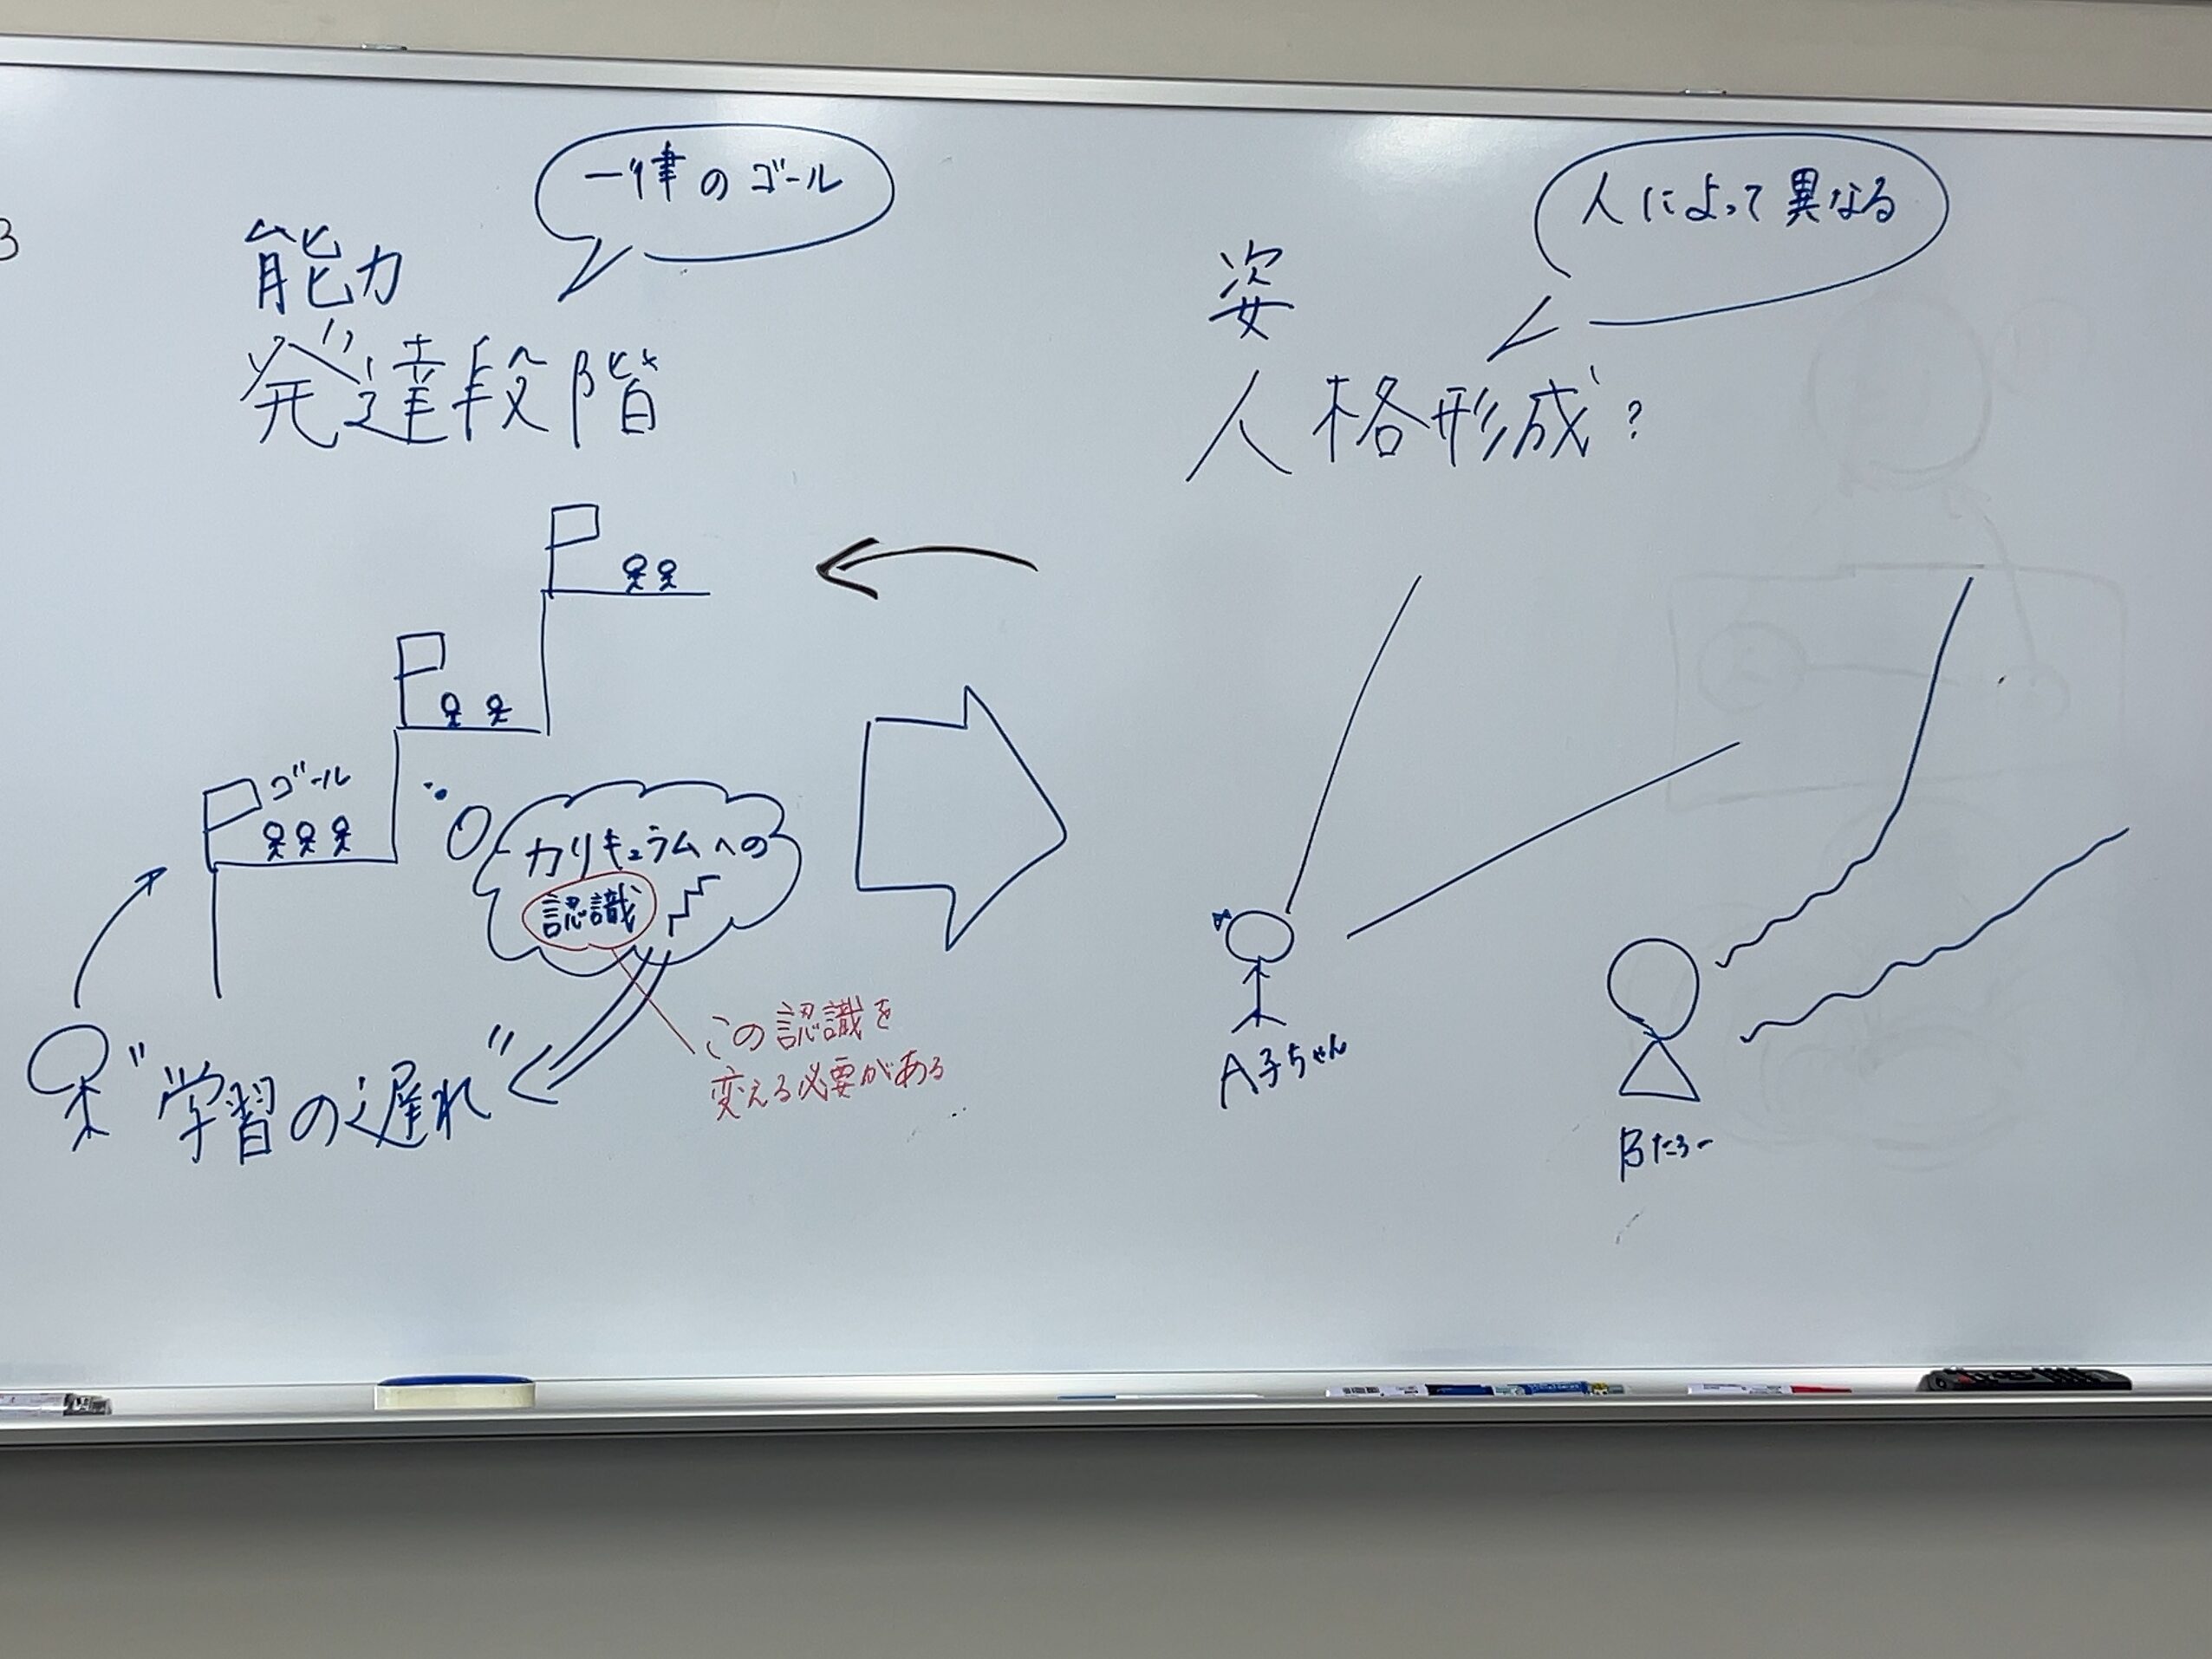 一律のゴール
能力
発達段階
ゴール
カリキュラムへの
認識
この認識を
変える必要がある
"学習の遅れ"
人によって異なる
姿
人格形成?
A子ちゃん
Bたろー
3